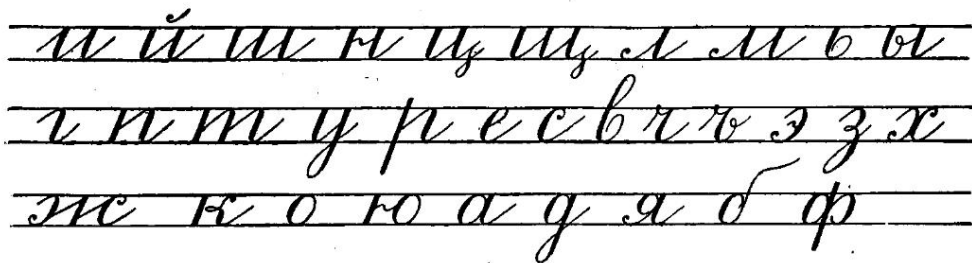 и й ш н ц щ л м ь ы
г п т у р е с в ч ъ э з х
ж к о ю а д я б ф